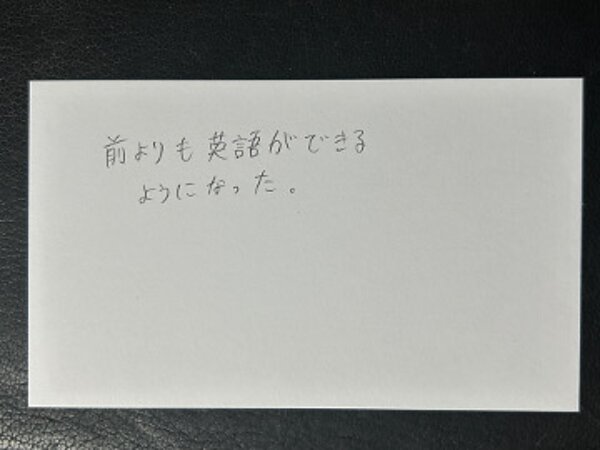 前よりも英語ができる
ようになった。